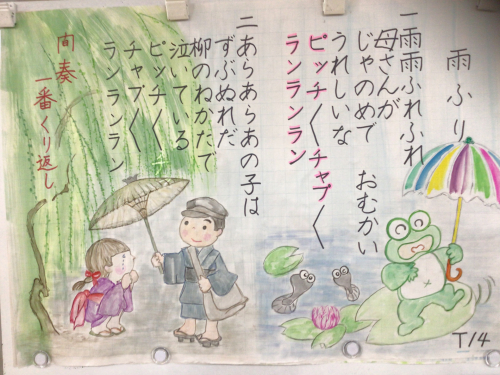 雨ふり
一雨雨ふれふれ
母さんが
じゃのめで おむかい
うれしいな
ピッチ〱チャプ〱
ランランラン
二あらあらあの子は
ずぶぬれだ
柳のねかたで
泣いている
ピッチ〱
チャプ〱
ランランラン
間奏
一番くり返し
T14